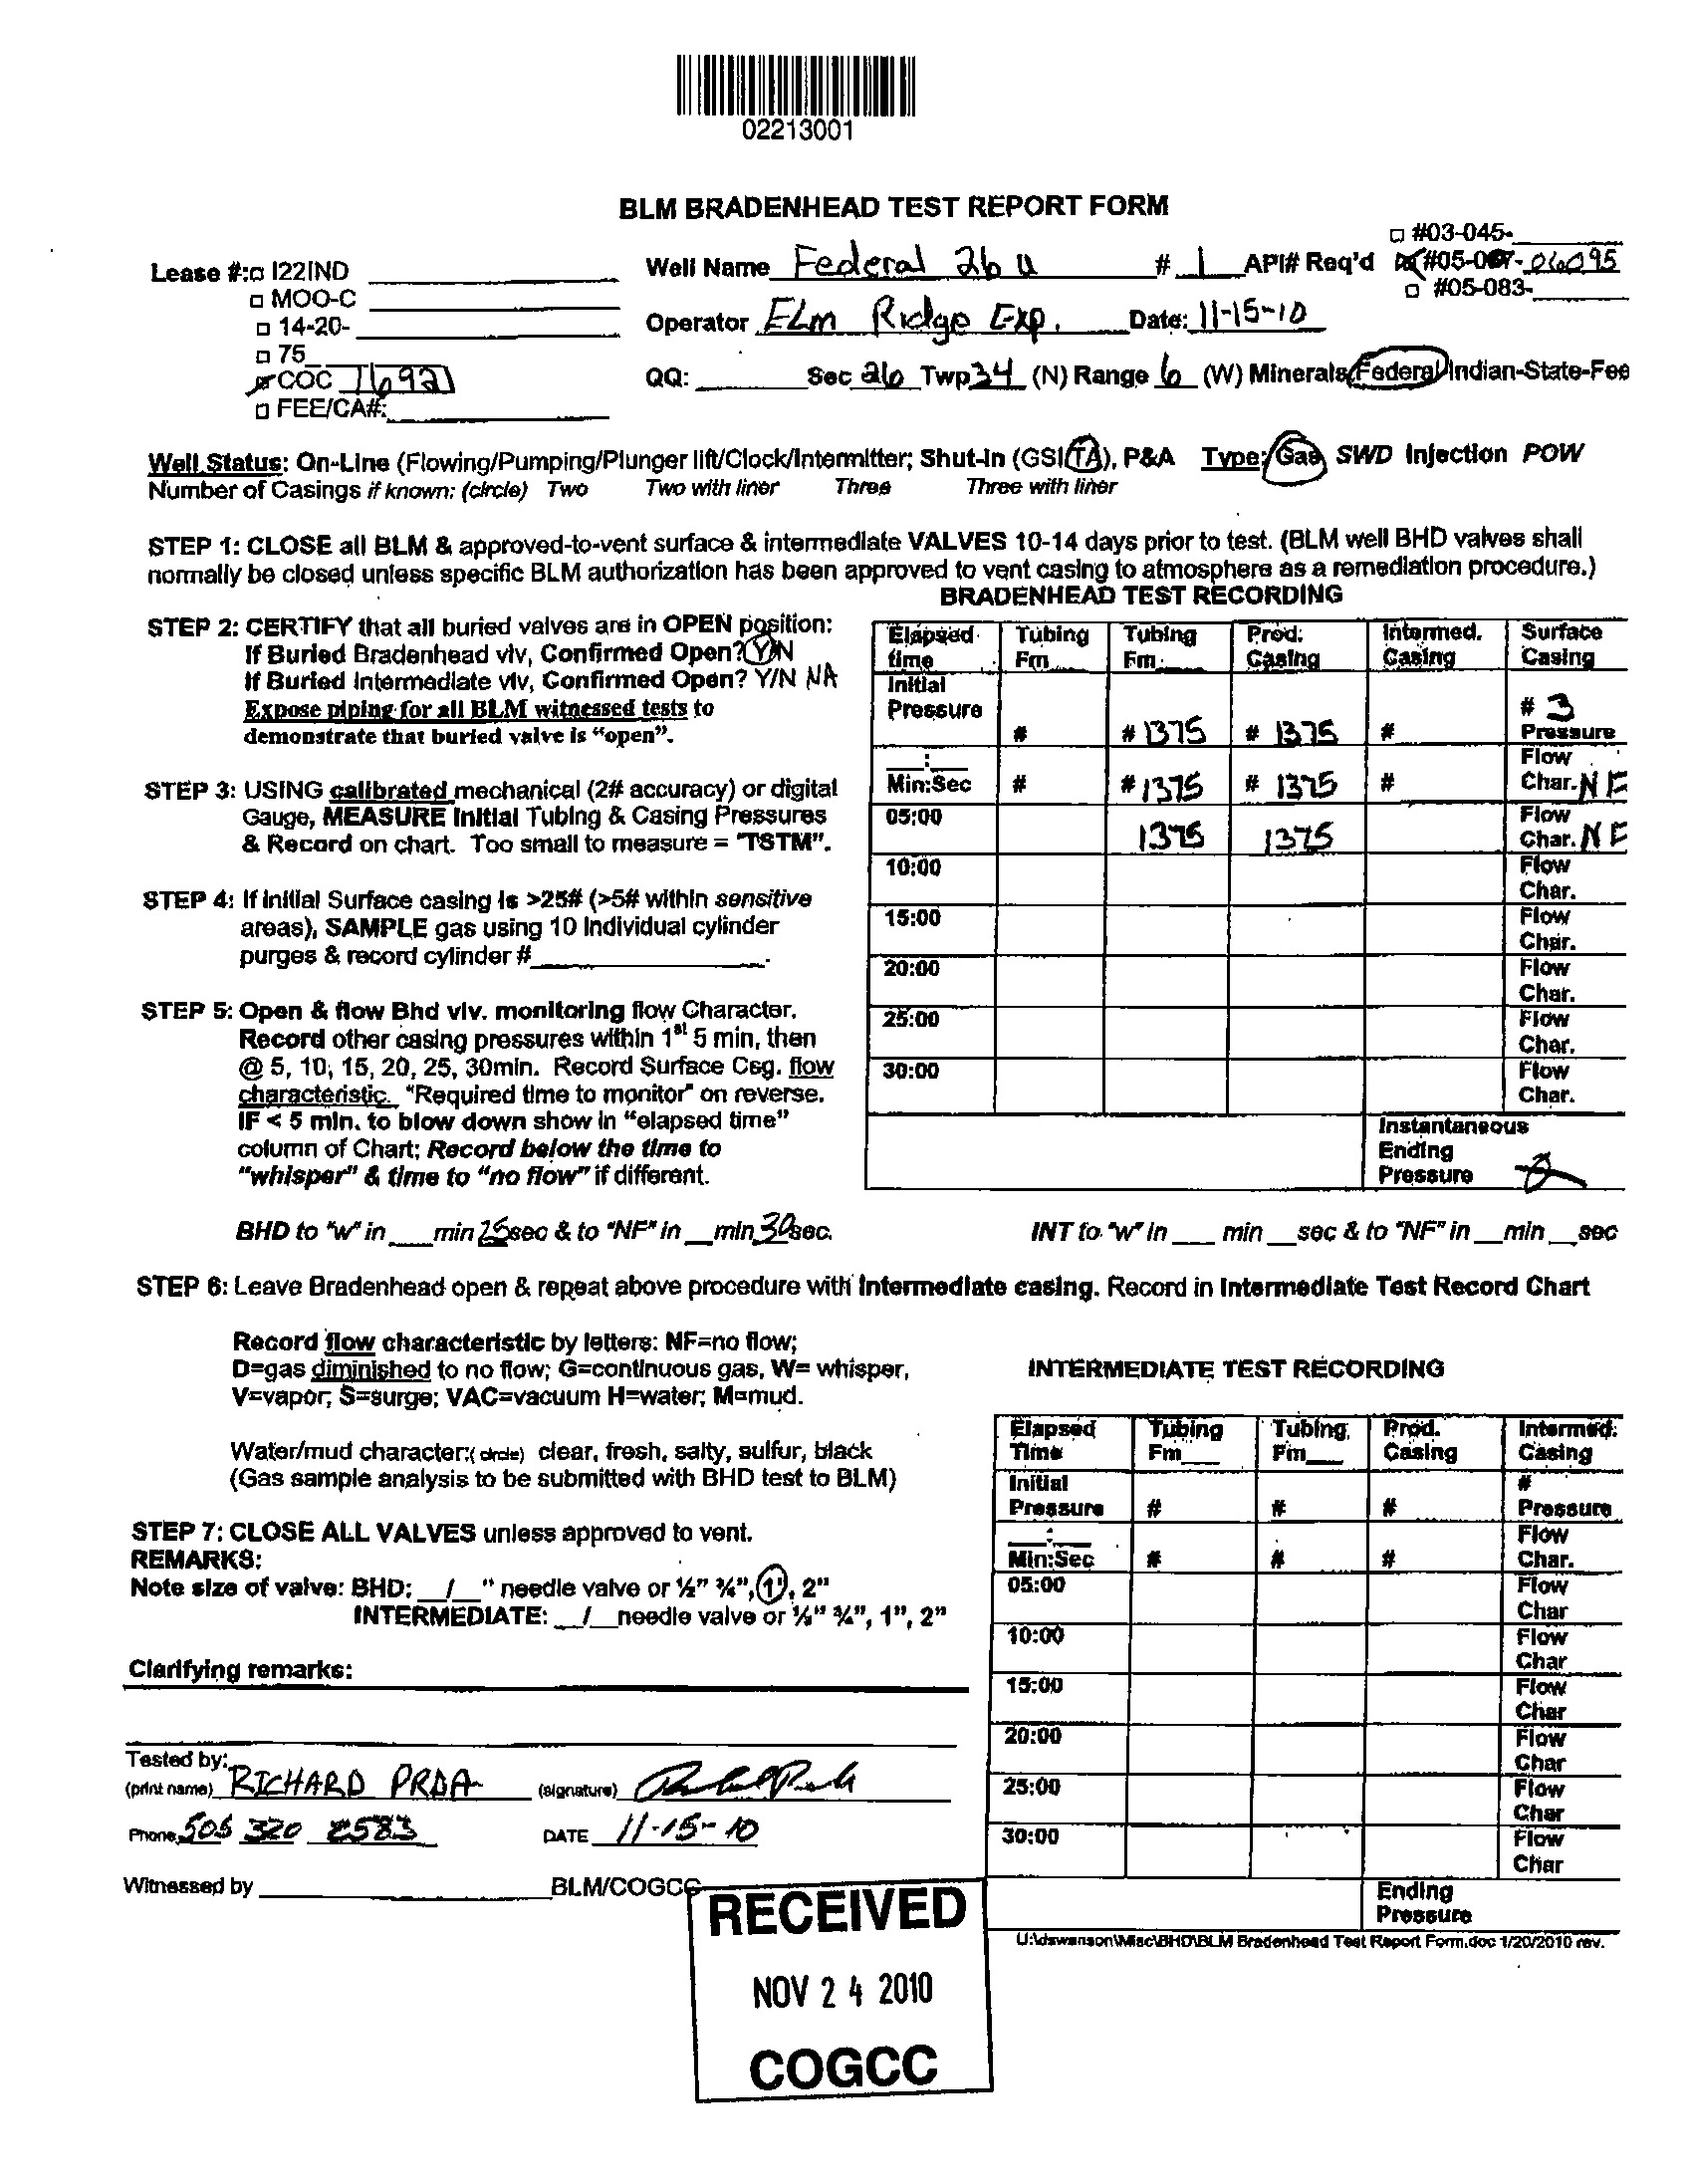 02213001
BLM BRADENHEAD TEST REPORT FORM
□ #03-045-
Lease #:□ I22IND
Well Name Federal 26 U # 1 API# Req'd #05-067-06095
□ MOO-C
□ #05-083-
□ 14-20-
Operator ELm Ridge Exp. Date: 11-15-10
□ 75
COC 16921
QQ: Sec 26 Twp 34 (N) Range 6 (W) Minerals Federal Indian-State-Fee
□ FEE/CA#:
Well Status: On-Line (Flowing/Pumping/Plunger lift/Clock/Intermitter; Shut-In (GSI/TA), P&A Type: Gas SWD Injection POW
Number of Casings if known: (circle) Two Two with liner Three Three with liner
STEP 1: CLOSE all BLM & approved-to-vent surface & intermediate VALVES 10-14 days prior to test. (BLM well BHD valves shall
normally be closed unless specific BLM authorization has been approved to vent casing to atmosphere as a remediation procedure.)
BRADENHEAD TEST RECORDING
STEP 2: CERTIFY that all buried valves are in OPEN position:
If Buried Bradenhead vlv, Confirmed Open? Y/N
If Buried Intermediate vlv, Confirmed Open? Y/N NA
Expose piping for all BLM witnessed tests to
demonstrate that buried valve is "open".
STEP 3: USING calibrated mechanical (2# accuracy) or digital
Gauge, MEASURE Initial Tubing & Casing Pressures
& Record on chart. Too small to measure = "TSTM".
STEP 4: If initial Surface casing is >25# (>5# within sensitive
areas), SAMPLE gas using 10 individual cylinder
purges & record cylinder #
STEP 5: Open & flow Bhd vlv. monitoring flow Character.
Record other casing pressures within 1st 5 min, then
@ 5, 10, 15, 20, 25, 30min. Record Surface Csg. flow
characteristic. "Required time to monitor" on reverse.
IF < 5 min. to blow down show in "elapsed time"
column of Chart; Record below the time to
"whisper" & time to "no flow" if different.
Elapsed time Tubing Fm Tubing Fm Prod. Casing Intermed. Casing Surface Casing
Initial Pressure # # 1375 # 1375 # # 3 Pressure
__:__ Min:Sec # # 1375 # 1375 # Flow Char. NF
05:00 1375 1375 Flow Char. NF
10:00 Flow Char.
15:00 Flow Char.
20:00 Flow Char.
25:00 Flow Char.
30:00 Flow Char.
Instantaneous Ending Pressure
BHD to "w" in ___min 25sec & to "NF" in __min 30sec.
INT to "w" in ___ min __sec & to "NF" in __min __sec
STEP 6: Leave Bradenhead open & repeat above procedure with Intermediate casing. Record in Intermediate Test Record Chart
Record flow characteristic by letters: NF=no flow;
D=gas diminished to no flow; G=continuous gas, W= whisper,
V=vapor; S=surge; VAC=vacuum H=water; M=mud.
Water/mud character:( circle) clear, fresh, salty, sulfur, black
(Gas sample analysis to be submitted with BHD test to BLM)
STEP 7: CLOSE ALL VALVES unless approved to vent.
REMARKS:
Note size of valve: BHD: __/__" needle valve or ½" ¾", 1", 2"
INTERMEDIATE: __/__needle valve or ½" ¾", 1", 2"
Clarifying remarks:
INTERMEDIATE TEST RECORDING
Elapsed Time Tubing Fm___ Tubing Fm___ Prod. Casing Intermed. Casing
Initial Pressure # # # # Pressure
__:__ Min:Sec # # # Flow Char.
05:00 Flow Char
10:00 Flow Char
15:00 Flow Char
20:00 Flow Char
25:00 Flow Char
30:00 Flow Char
Ending Pressure
Tested by:
(print name) RICHARD (signature)
Phone 505 320 2583 DATE 11-15-10
Witnessed by BLM/COGCC
U:\dswanson\Misc\BHD\BLM Bradenhead Test Report Form.doc 1/20/2010 rev.
RECEIVED
NOV 24 2010
COGCC